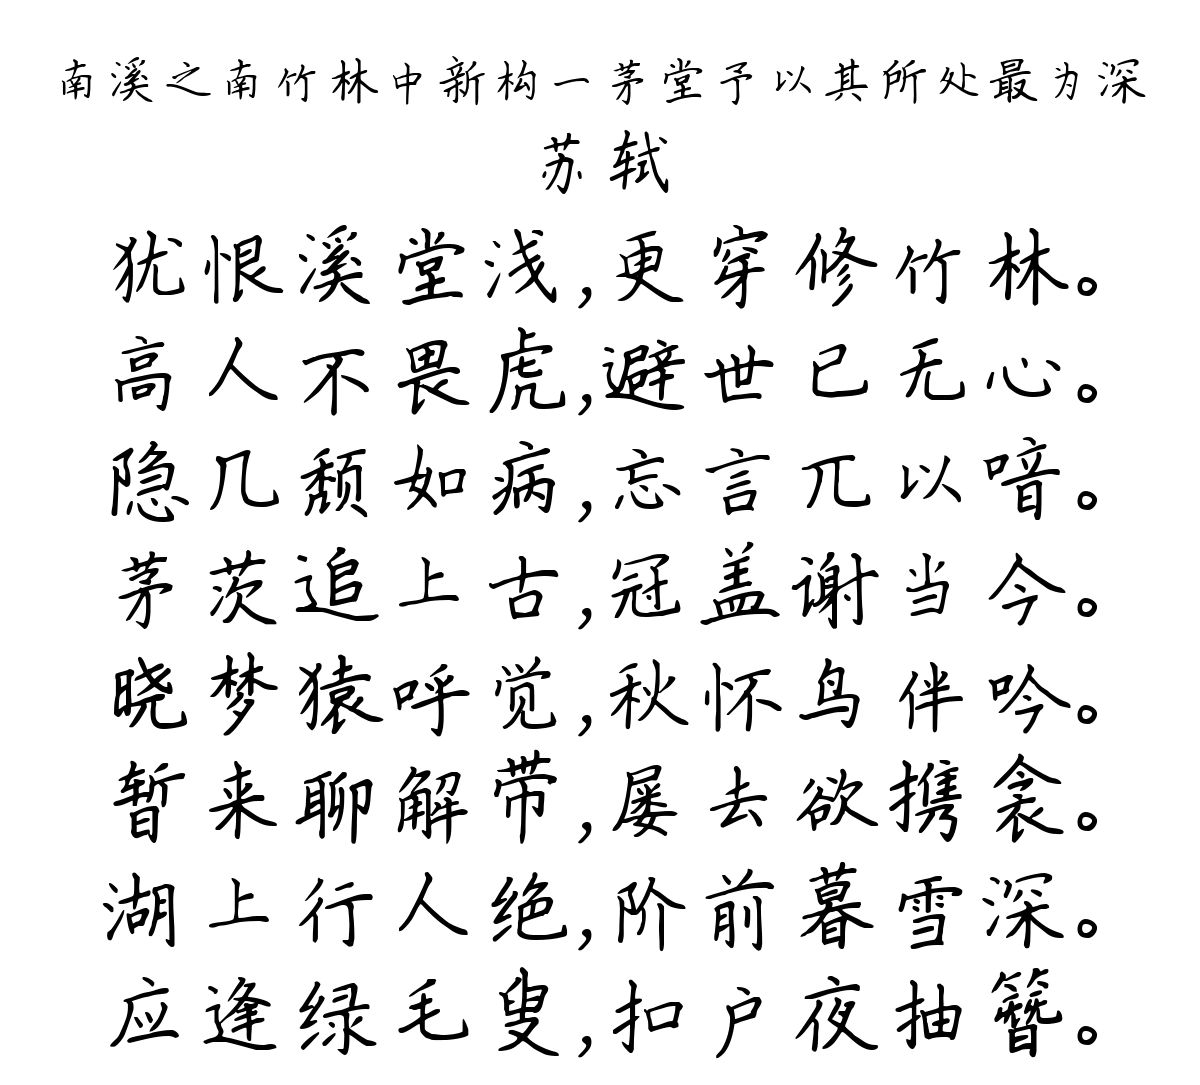 南溪之南竹林中新构一茅堂予以其所处最为深
苏轼
犹恨溪堂浅,更穿修竹林。
高人不畏虎,避世已无心。
隐几颓如病,忘言兀以喑。
茅茨追上古,冠盖谢当今。
晓梦猿呼觉,秋怀鸟伴吟。
暂来聊解带,屡去欲携衾。
湖上行人绝,阶前暮雪深。
应逢绿毛叟,扣户夜抽簪。